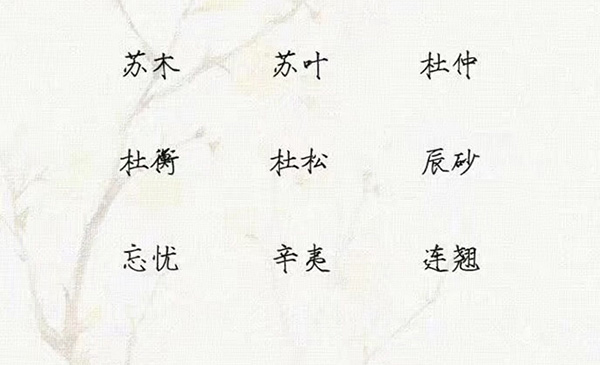 苏木 苏叶 杜仲
杜衡 杜松 辰砂
忘忧 辛夷 连翘